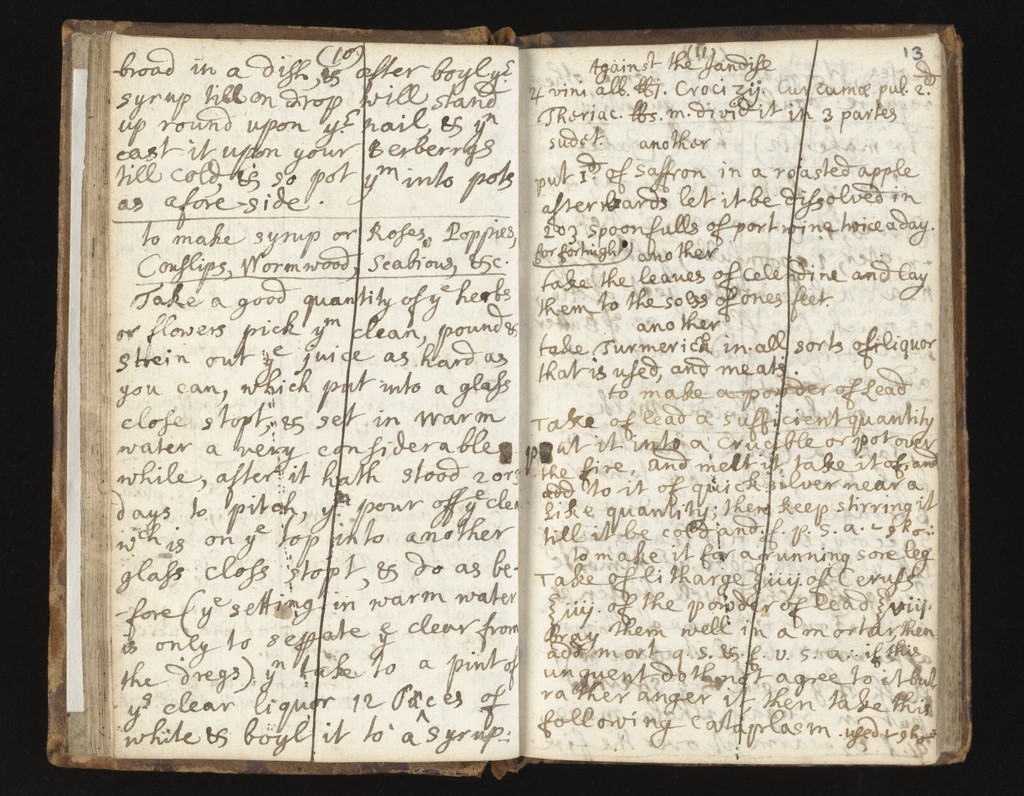 (10)
broad in a dish, & after boyl yᵉ
syrup till on drop will stand
up round upon yᵉ nail, & yⁿ
cast it upon your Berberrys
till cold, & so pot yᵐ into pots
as afore-side.
to make syrup or Roses, Poppies,
Couslips, Wormwood, Scabious, &c.
Take a good quantity of yᵉ herbs
or flowers pick yᵐ clean, pound &
strein out yᵉ juice as hard as
you can, which put into a glass
close stopt, & set in warm
water a very considerable
while, after it hath stood 2 or 3
days to pitch, yⁿ pour off yᵉ clea
wᶜʰ is on yᵉ top into another
glass closs stopt, & do as be-
-fore (yᵉ setting in warm water
is only to seprate yᵉ clear from
the dregs) yⁿ take to a pint of
yˢ clear liquor 12 Ounces of
white & boyl it to a syrup:
(11)
13
Against the Jandise
vini alb. ℔j. Croci ʒij. Curcumæ pul.
Theriac. ℔s. m. divid it in 3 partes
sudet. another
put 1ᵈ of Saffron in a roasted apple
afterwards let it be dissolved in
2 or 3 spoonfulls of port wine twice a day.
(for fortnight) another
take the leaves of Celendine and lay
them to the soles of ones feet.
another
take Turmerick in all sorts of liquor
that is used, and meats.
to make a powder of Lead
Take of lead a sufficient quantity
put it into a Crucible or pot over
the fire, and melt it, take it of, and
add to it of quicksilver near a
like quantity; then keep stirring it
till it be cold and f. p. S. a.
to make it for a running sore leg
Take of litharge ℥iiij. of Ceruss
℥iiij. of the powder of lead ℥viij.
bray them well in a mortar then
add mort q. s. & f. v. s. a: if this
unguent doth not agree to it but
rather anger it then take this
following Cataplasm. used